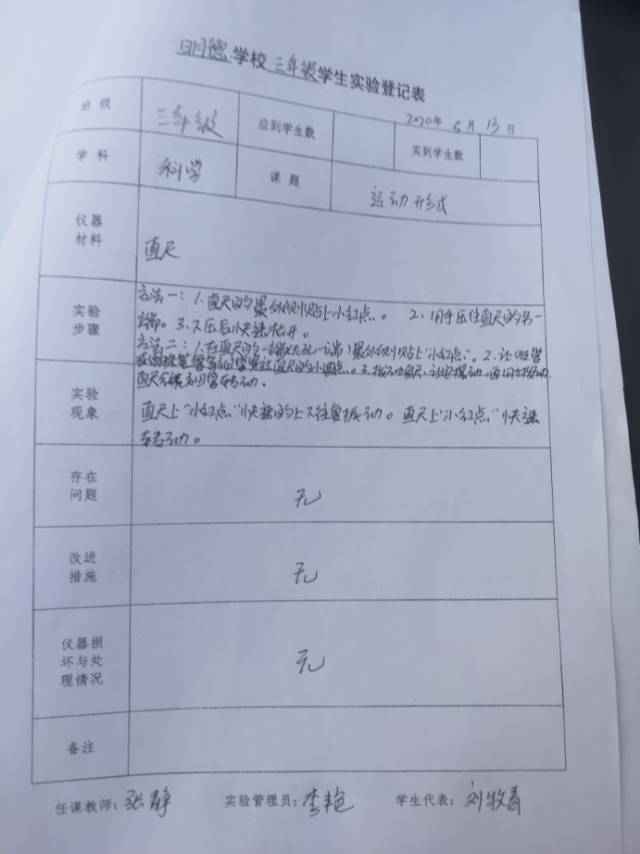 明德学校三年级学生实验登记表
2020年6月13日
班级 三年级 应到学生数 实到学生数
学科 科学 课题 运动形式
仪器材料 直尺
实验步骤
方法一:1.直尺的最外侧贴上"小红点"。 2.用手压住直尺的另一
端。3.下压后快速松开。
方法二:1.在直尺的一端(最外侧贴上"小红点"。2.让
直尺
实验现象
直尺上"小红点"快速的上下往复振动。直尺上"小红点"快速
转动。
存在问题 无
改进措施 无
仪器损坏与处理情况 无
备注
任课教师:张静 实验管理员:李艳 学生代表:刘牧青